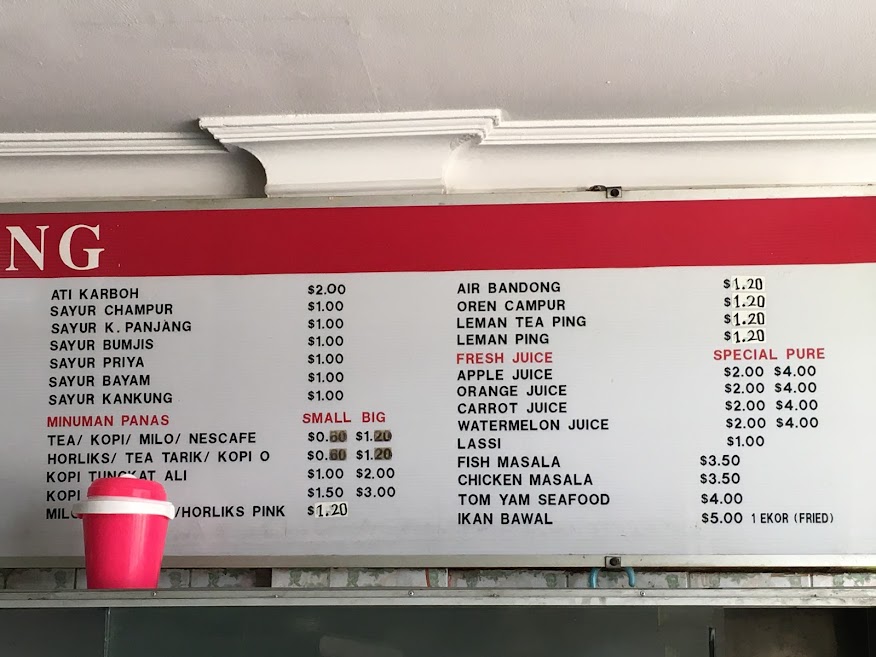 NG
ATI KARBOH $2.00
SAYUR CHAMPUR $1.00
SAYUR K. PANJANG $1.00
SAYUR BUMJIS $1.00
SAYUR PRIYA $1.00
SAYUR BAYAM $1.00
SAYUR KANKUNG $1.00
MINUMAN PANAS SMALL BIG
TEA/ KOPI/ MILO/ NESCAFE $0.60 $1.20
HORLIKS/ TEA TARIK/ KOPI O $0.60 $1.20
KOPI TUNGKAT ALI $1.00 $2.00
KOPI $1.50 $3.00
/HORLIKS PINK $1.20
AIR BANDONG $1.20
OREN CAMPUR $1.20
LEMAN TEA PING $1.20
LEMAN PING $1.20
FRESH JUICE SPECIAL PURE
APPLE JUICE $2.00 $4.00
ORANGE JUICE $2.00 $4.00
CARROT JUICE $2.00 $4.00
WATERMELON JUICE $2.00 $4.00
LASSI $1.00
FISH MASALA $3.50
CHICKEN MASALA $3.50
TOM YAM SEAFOOD $4.00
IKAN BAWAL $5.00 1 EKOR (FRIED)